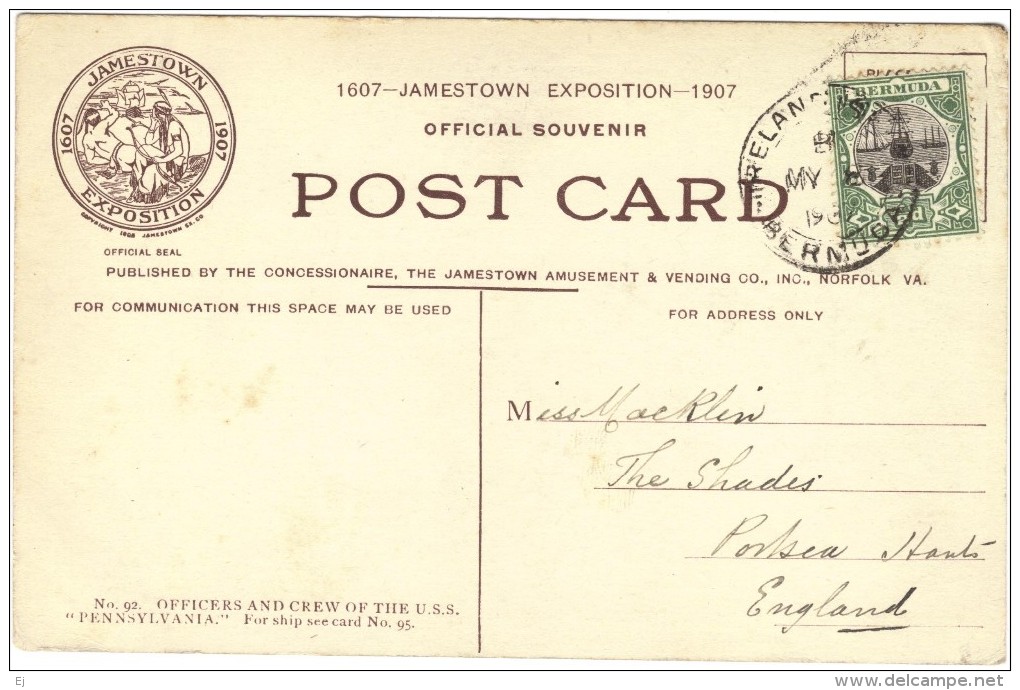 JAMESTOWN
1607 1907
EXPOSITION
COPYRIGHT 1905 JAMESTOWN EX. CO
OFFICIAL SEAL
1607—JAMESTOWN EXPOSITION—1907
OFFICIAL SOUVENIR
POST CARD
BERMUDA
IRELAND
MY
1907
BERMUDA
PUBLISHED BY THE CONCESSIONAIRE, THE JAMESTOWN AMUSEMENT & VENDING CO., INC., NORFOLK VA.
FOR COMMUNICATION THIS SPACE MAY BE USED
FOR ADDRESS ONLY
Miss Macklin
The Shades
Portsea Hants
England
No. 92. OFFICERS AND CREW OF THE U.S.S.
"PENNSYLVANIA." For ship see card No. 95.
Ej
delcampe.net